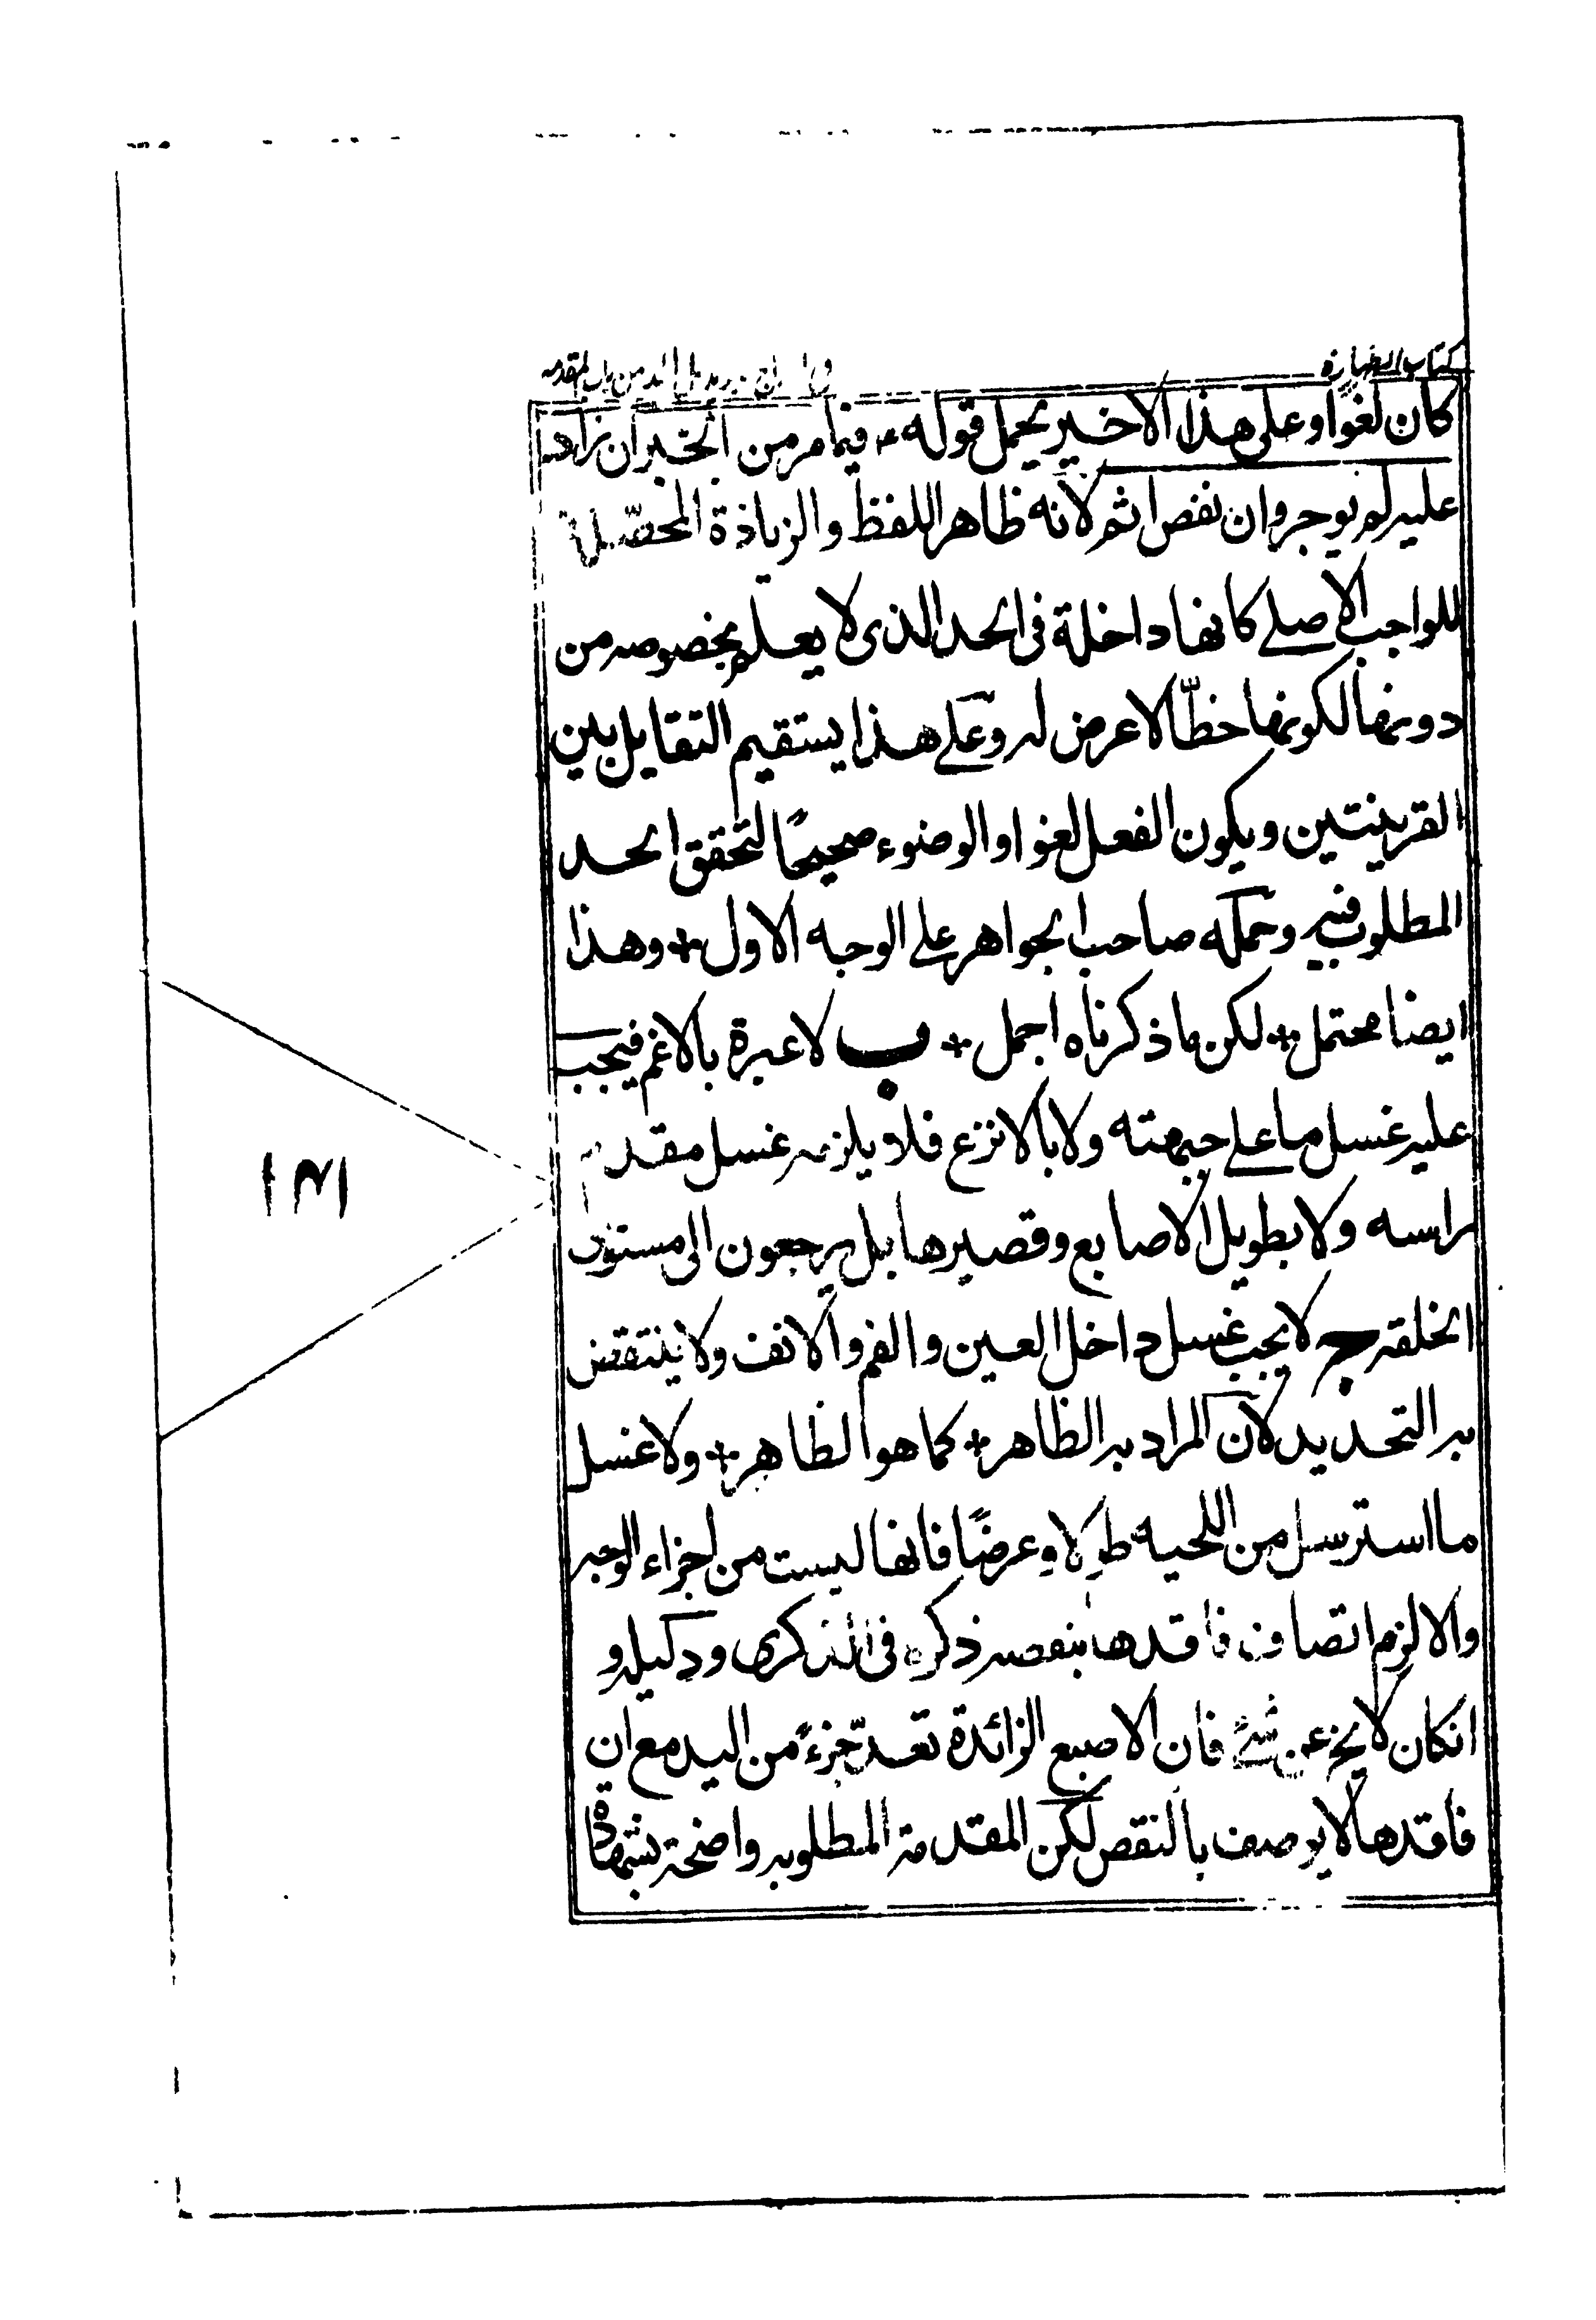 كتاب الطهارة
من باب المقدمه
كان لغوا وعلى هذا الاخير يحمل قوله ع فيما مر من الخبر ان زاد
عليه لم يوجر وان نقص اثم لانه ظاهر اللفظ والزيادة المحصّلة
للواجب الاصلى كانها داخلة فى الحد الذى لا يعلم بخصوصه من
دونها لكونها خطّا لا عرض له وعلى هذا يستقيم التقابل بين
القرينتين ويكون الفعل لغوا والوضوء صحيحًا لتحقق الحد
المطلوب فيه وحمله صاحب الجواهر على الوجه الاول + وهذا
ايضا محتمل + لكن ما ذكرناه اجمل + ب لا عبرة بالاغم فيجب
عليه غسل ما على جبهته ولا بالانزع فلا يلزمه غسل مقدم
راسه ولا بطويل الاصابع وقصيرها بل يرجعون الى مستوى
الخلقه ج لا يجب غسل داخل العين والفم والانف ولا ينتقض
به التحديد لان المراد به الظاهر + كما هو الظاهر + ولا غسل
ما استرسل من اللحيه طولا وعرضًا فانها ليست من اجزاء الوجه
والا لزم اتصاف فاقدها بنقصه ذكره فى الذكرى ودليله و
انكان لا يخ عن شئ فان الاصبع الزائدة تعدّ جزءً من اليد مع ان
فاقدها لا يوصف بالنقص لكن المقدمة المطلوبه واضحة بشهادة
١٣١